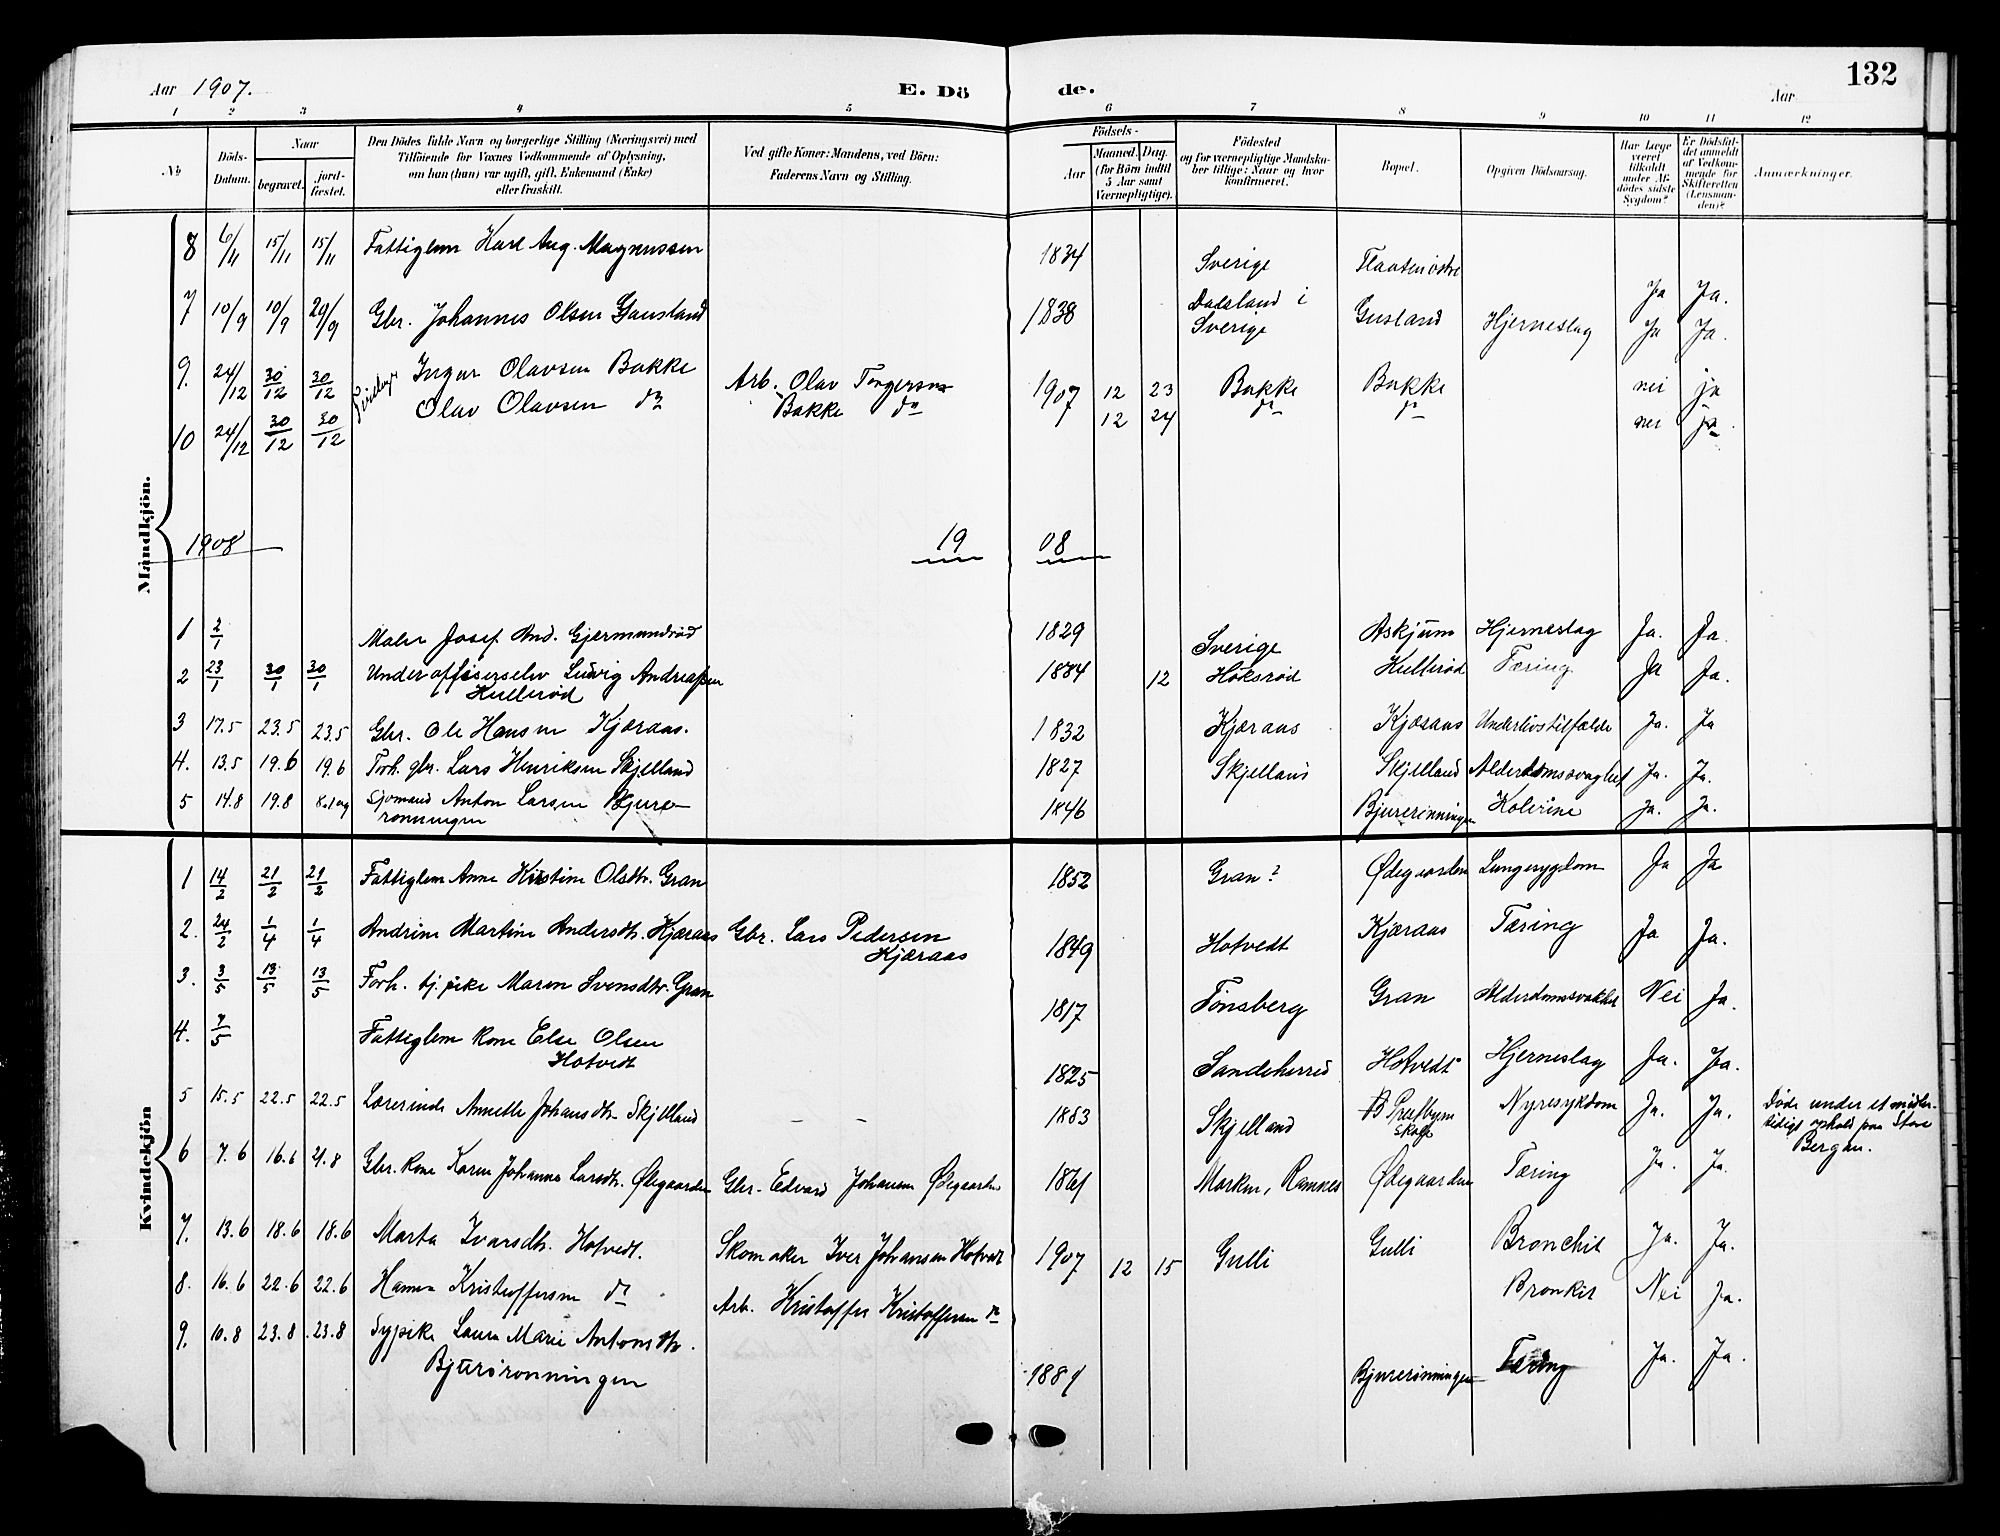 Aar 1907. E. Döde. Aar 132
1 2 3 4 5 6 7 8 9 10 11 12
No
Döds-Datum.
Naar
begravet.
jord-fæstet.
Den Dödes fulde Navn og borgerlige Stilling (Næringsvei) med
Tilföiende for Voxnes Vedkommende af Oplysning,
om han (hun) var ugift, gift, Enkemand (Enke)
eller fraskilt.
Ved gifte Koner: Mandens, ved Börn:
Faderens Navn og Stilling.
Födsels-
Aar
Maaned. Dag.
(for Börn indtil
5 Aar samt
Værnepligtige).
Födested
og for værnepligtige Mandska-
ber tillige: Naar og hvor
konfirmeret.
Bopæl.
Opgiven Dödsaarsag.
Har Læge
været
tilkaldt
under Af-
dödes sidste
Sygdom?
Er Dödsfal-
det anmeldt
af Vedkom-
mende for
Skifteretten
(Lensman-
den)?
Anmærkninger.
Mandkjön.
8 6/11 15/11 15/11 Fattiglem Karl Aug. Magnussen 1834 Sverige Flaatenöstre Ja Ja.
7 10/9 10/9 29/9 Gbr. Johannes Olsen Gausland 1838 Dalsland i Sverige Gusland Hjerneslag Ja Ja.
9. 24/12 30/12 30/12 Ingar Olavsen Bakke Arb. Olav Torgersen Bakke 1907 12 23 Bakke Bakke nei ja
10 24/12 30/12 30/12 Olav Olavsen do do 12 24 do do nei ja
1908 1908
1 2/1 Maler Josef And. Gjermundröd 1829 Sverige Askjum Hjerneslag Ja. Ja.
2 23/1 30/1 30/1 Underoffiserselev Ludvig Andreassen Kulleröd 1884 12 Höksröd Kulleröd Tæring Ja Ja.
3 17.5 23.5 23.5 Gbr. Ole Hansen Kjæraas. 1832 Kjæraas Kjæraas Underlivstilfælde Ja. Ja
4. 13.5 19.6 19.6 Forh. gbr. Lars Henriksen Skjelland 1827 Skjelland Skjelland Alderdomssvaghet Ja. Ja.
5 14.8 19.8 Sjömand Anton Larsen Bjurerönningen 1846 Bjurerönningen Kolerine Ja. Ja.
Kvindekjön
1 14/2 21/2 21/2 Fattiglem Anne Kristine Olsdtr. Gran 1852 Gran? Ødegaarden Lungesygdom Ja Ja
2. 24/2 1/4 1/4 Andrine Martine Andersdtr. Kjæraas Gbr. Lars Pedersen Kjæraas 1849 Hotvedt Kjæraas Tæring Ja Ja.
3. 3/5 13/5 13/5 Forh. tj. pike Maren Svensdtr. Gran 1817 Tönsberg Gran Alderdomssvakhet Nei Ja.
4. 7/5 Fattiglem kone Else Olsen Hotvedt 1825 Sandeherred Hotvedt Hjerneslag Ja. Ja.
5 15.5 22.5 22.5 Lærerinde Annette Johansdtr. Skjelland – – 1883 Skjelland Presbyen skole Nyresykdom Ja. Ja. Döde under et midler-
tidigt ophold paa Store
Bergan.
6 7.6 16.6 21.8 Gbr. kone Karen Johanne Larsdtr. Ødegaarden Gbr. Edvard Johansen Ødegaarden 1861 Morken, Ramnes Ødegaarden Tæring Ja. Ja.
7. 13.6 18.6 18.6 Marta Ivarsdtr. Hotvedt. Skomaker Iver Johansen Hotvedt 1907 12 15 Gulli Gulli Bronchit Ja. Ja.
8. 16.6 22.6 22.6 Hanna Kristoffersen do Arb. Kristoffer Kristoffersen do Bronkit Nei Ja.
9. 10.8 23.8 23.8 Sypike Laura Marie Antonsdtr. Bjurerönningen 1881 Bjurerönningen Tæring Ja. Ja.